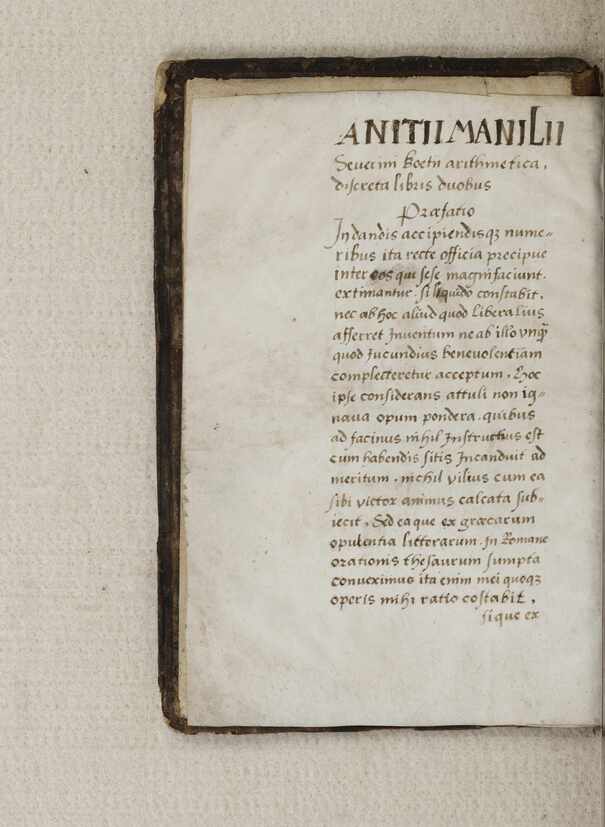 ANITII MANILII
Severini Boetii arithmetica,
discreta libris duobus
Præfatio
In dandis accipiendisq3 nume-
ribus ita recte officia precipue
inter eos qui sese magnifaciunt.
extimantur. si liquido constabit,
nec ab hoc aliud quod liberalius
afferret Inventum ne ab illo vnq̃
quod Iucundius benevolentiam
complecteretur acceptum. Hæc
ipse considerans attuli non ig-
nava opum pondera. quibus
ad facinus nihil Instructius est
cum habendis sitis Incanduit ad
meritum. nichil vilius cum ea
sibi victor animus calcata sub-
iecit. Sed ea que ex græcarum
opulentia litterarum. In Romane
orationis thesaurum sumpta
conveximus ita enim mei quoq3
operis mihi ratio costabit,
si que ex